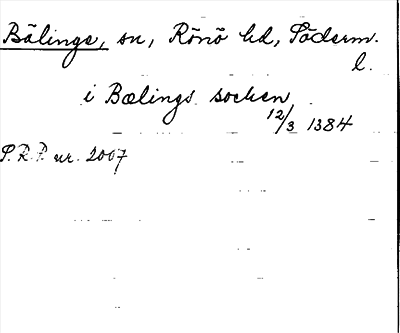 Bälinge, sn, Rönö hd, Söderm.
l.
i Bælings socken
12/3 1384
S.R.P. nr. 2007